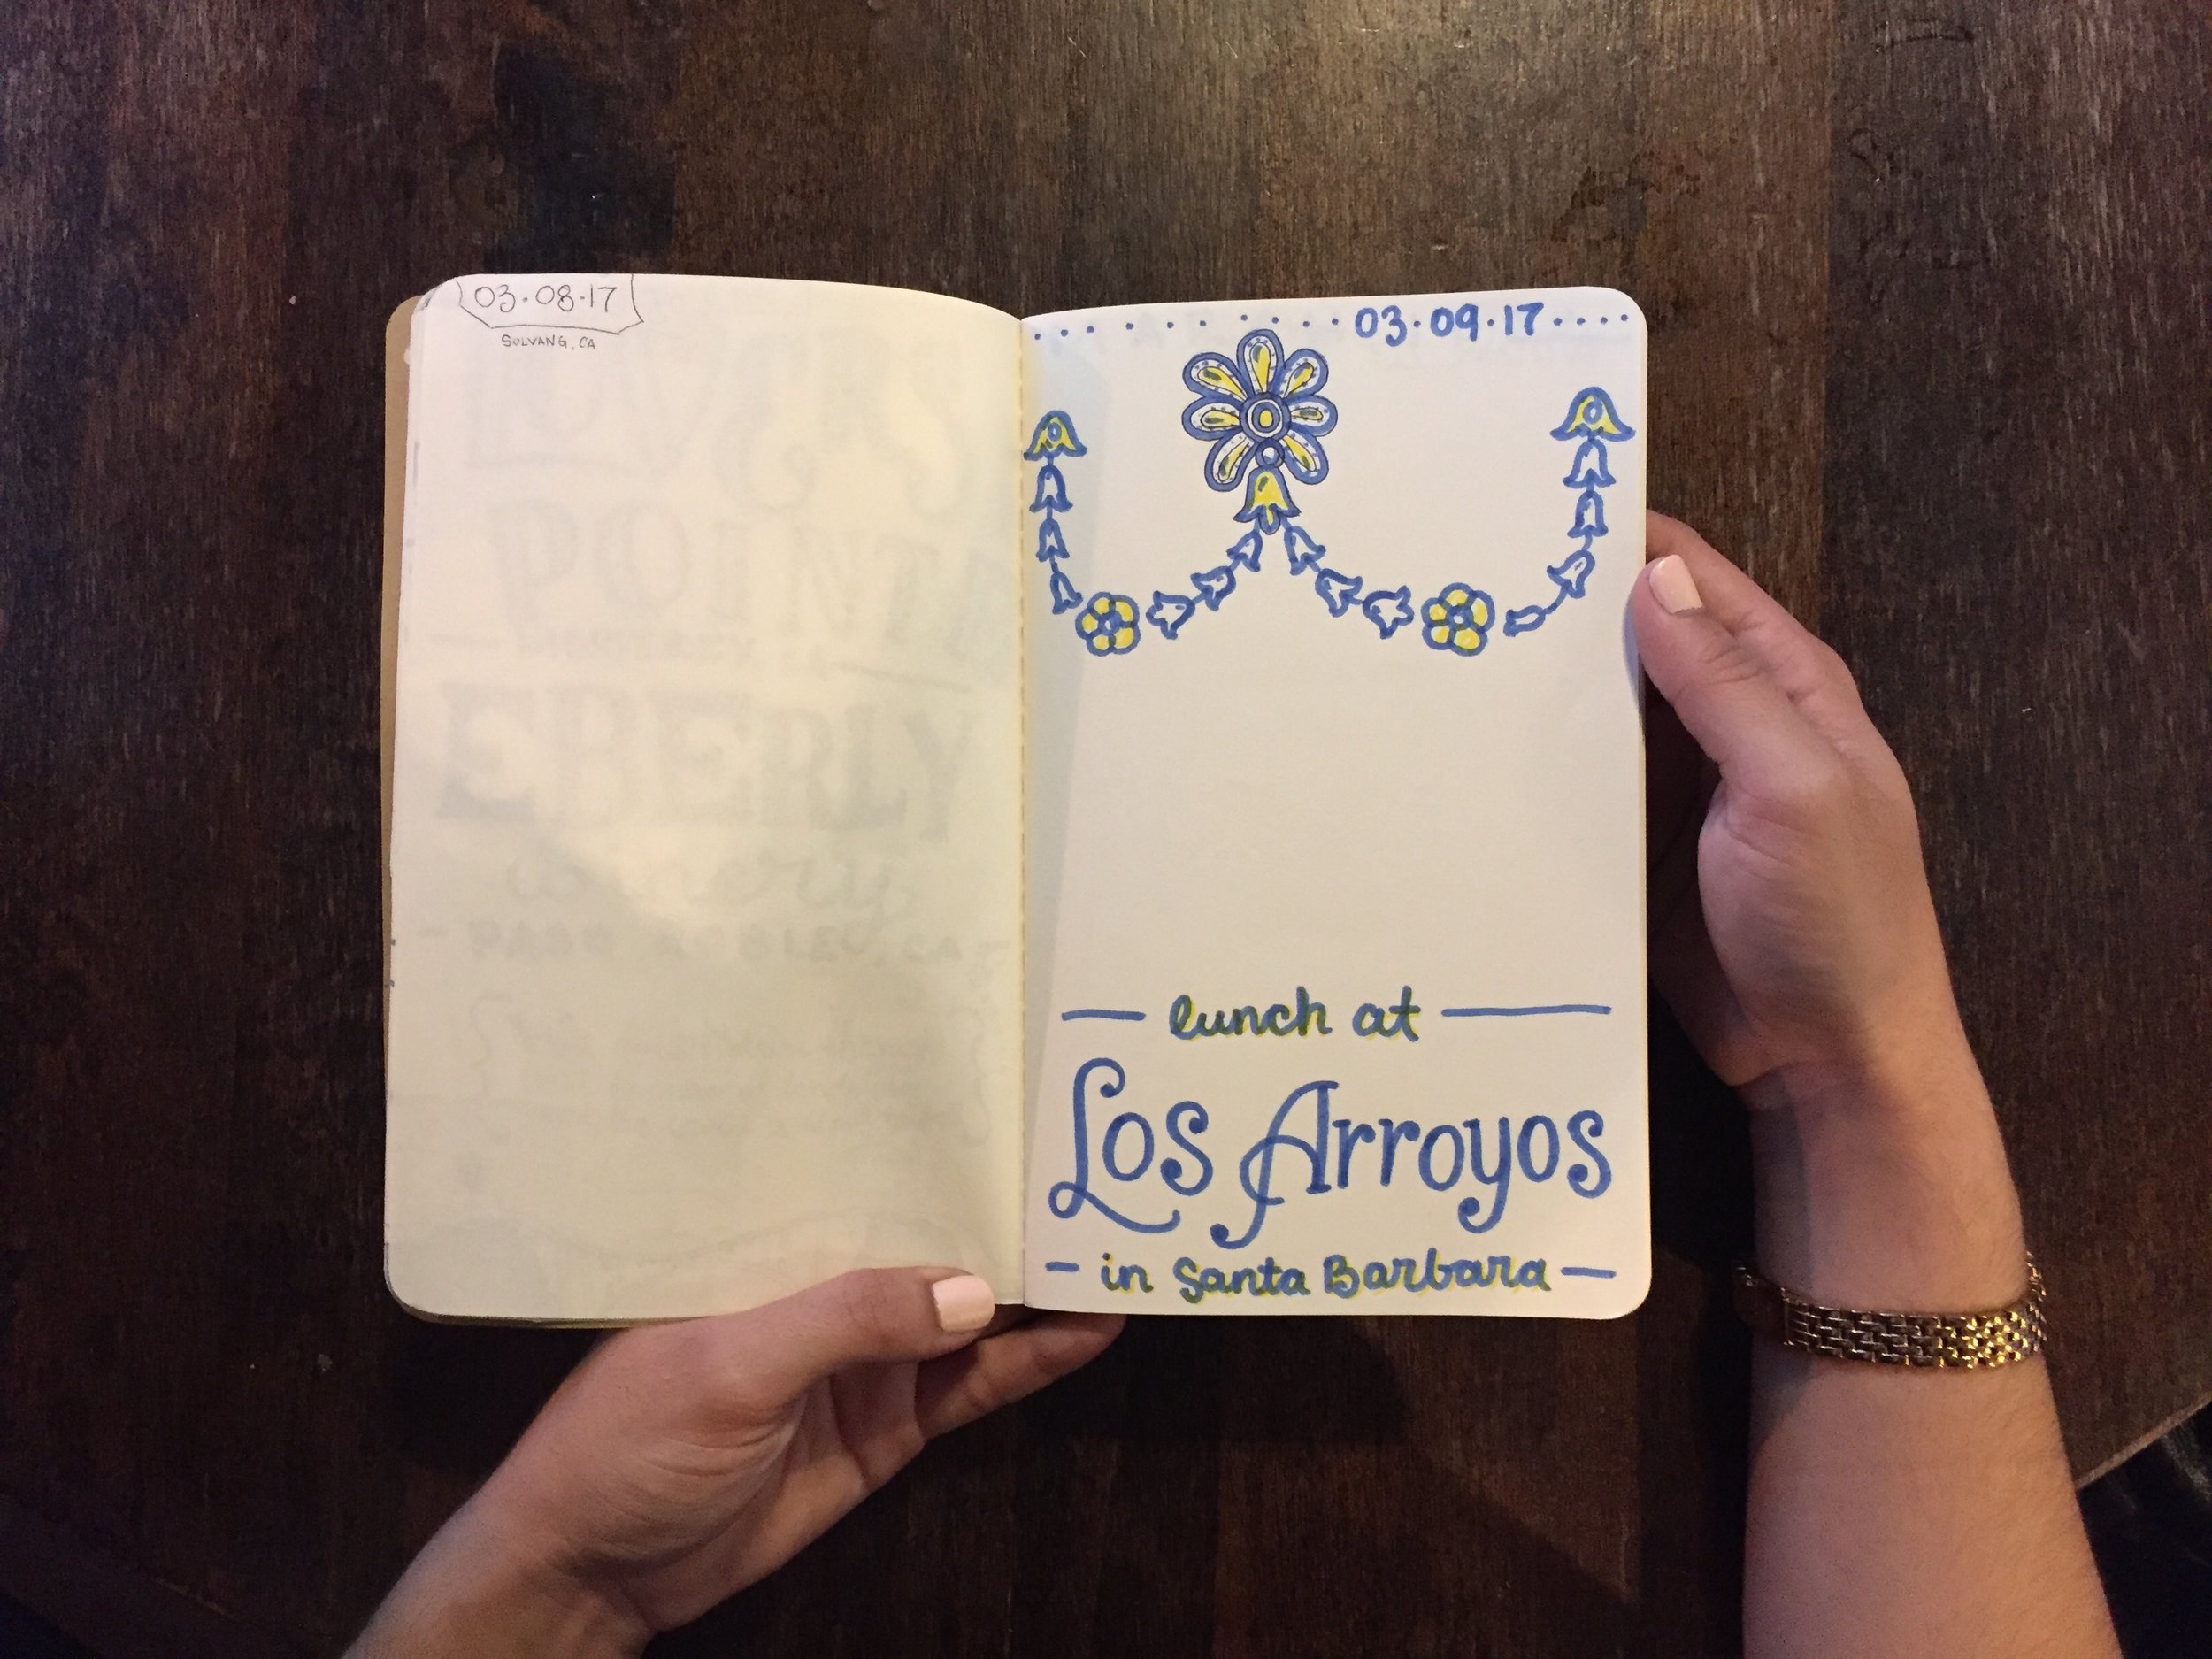 03.08.17
SOLVANG, CA
03.09.17
lunch at
Los Arroyos
in Santa Barbara